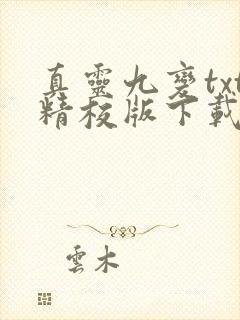 真靈九變txt
精校版下載
雲木